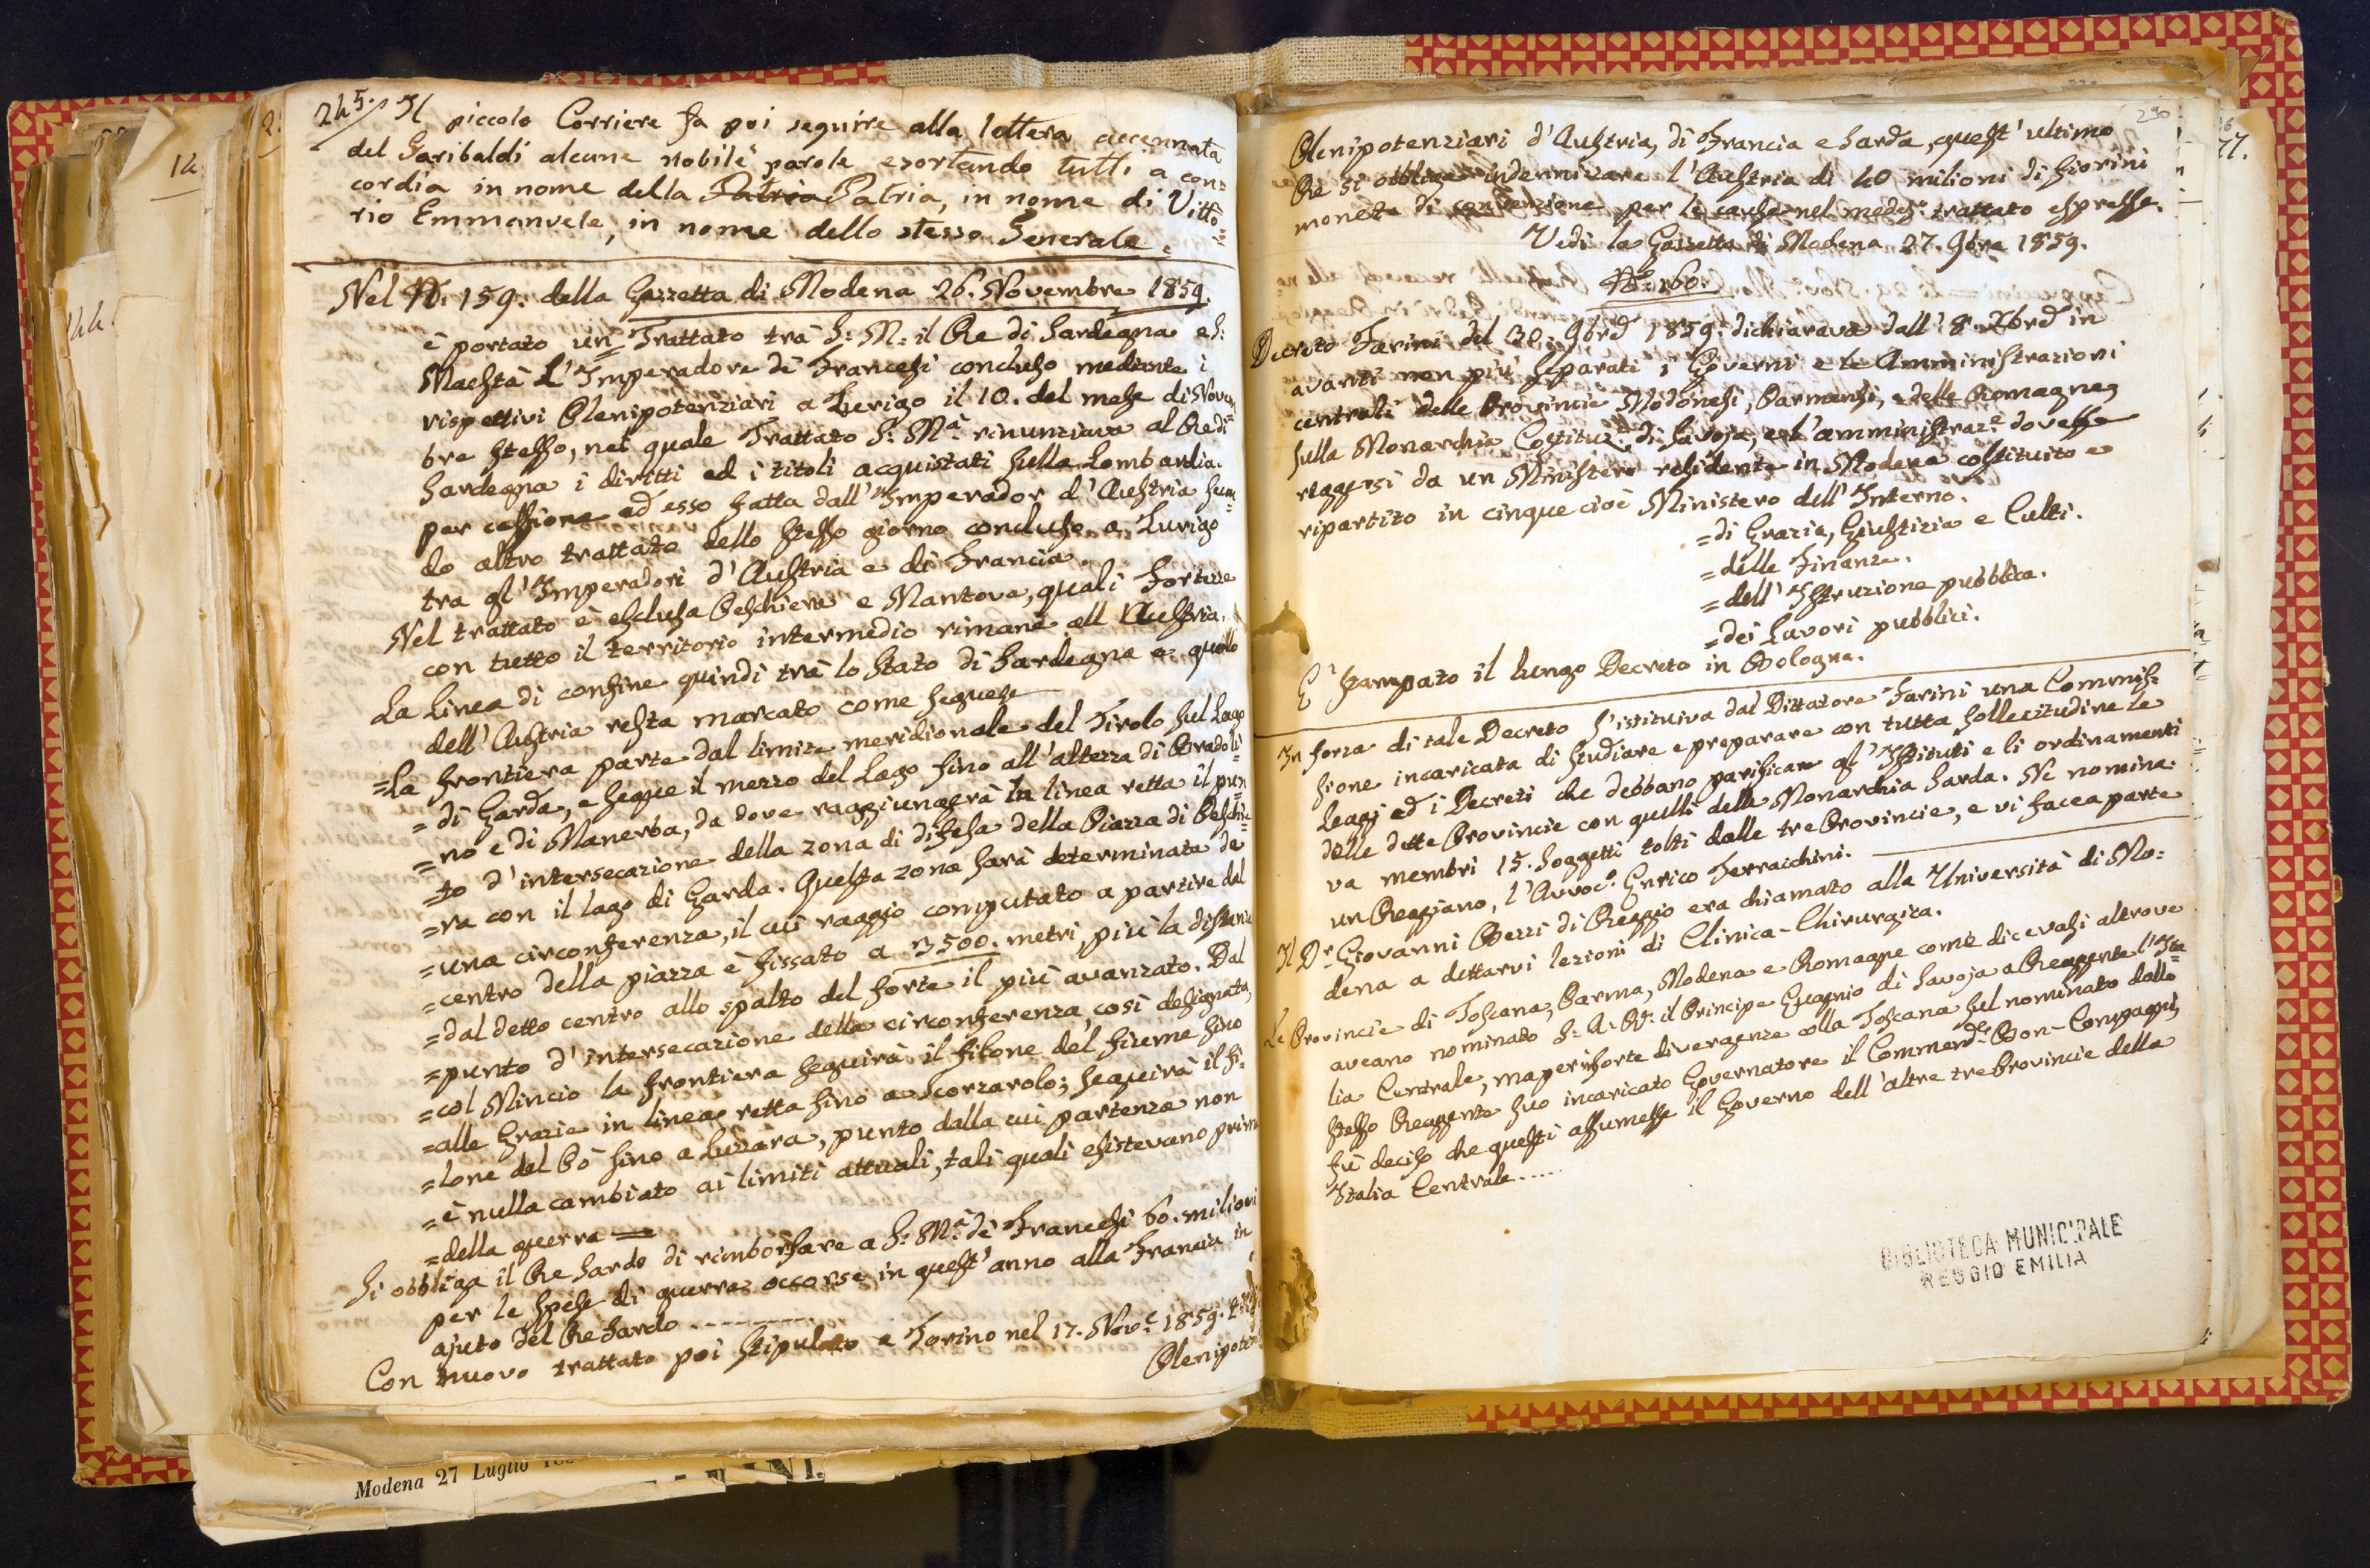 245.
Il piccolo Corriere fa poi seguire alla lettera accennata
del Garibaldi alcune nobili parole esortando tutti a con=
cordia in nome della Patria Patria, in nome di Vitto=
rio Emmanuele, in nome dello stesso Generale.
Nel N. 159. della Gazzetta di Modena 26. Novembre 1859.
è portato un Trattato trà S: M: il Re di Sardegna e S:
Maestà L'Imperadore dè Francesi concluso mediante i
rispettivi Plenipotenziari a Zurigo il 10. del mese di Novem
bre stesso, nel quale Trattato S: Mà rinunziava al Re di
Sardegna i diritti ed i titoli acquistati sulla Lombardia.
per cessione ad esso fatta dall'Imperador d'Austria
do altro trattato dello stesso giorno concluso a Zurigo
tra gl'Imperadori d'Austria e di Francia.
Nel trattato è esclusa Peschiera e Mantova, quali Fortezze
con tutto il territorio intermedio rimane all'Austria.
La Linea di confine quindi trà lo Stato di Sardegna e quello
dell'Austria resta marcato come segue
=La frontiera parte dal limite meridionale del Tirolo sul Lago
= di Garda, e segue il mezzo del Lago fino all'altezza di Bradoli=
=no e di Manerba, da dove raggiungerà in linea retta il pun
=to d'intersecazione della zona di difesa della Piazza di Peschie=
=ra con il lago di Garda. Questa zona sarà determinata da
=una circonferenza, il cui raggio computato a partire dal
=centro della piazza è fissato a 3500. metri, più la distanza
=dal detto centro allo spalto del forte il più avanzato. Dal
=punto d'intersecazione della circonferenza così designata,
=col Mincio la frontiera seguirà il filone del fiume fino
=alle Grazie in linea retta fino a Scorzarolo; seguirà il fi.
=lone del Pò fino a Luzzara, punto dalla cui partenza non
=è nulla cambiato ai limiti attuali, tali quali esistevano prima
=della guerra =
Si obbliga il Re Sardo di rimborsare a S: Mà dè Francesi 60. milioni
per le spese di guerra occorse in quest'anno alla Francia in
ajuto del Re Sardo ---------
Con nuovo trattato poi stipulato a Torino nel 17. Nove 1859.
Plenipoten
290
Plenipotenziari d'Austria, di Francia e Sarda, quest'ultimo
Re si obbliga indennizare l'Austria di 40 milioni di fiorini
moneta di convenzione per le cause nel medes.o trattato espresse.
Vedi la Gazzetta di Modena 27. 9bre 1859.
N. 160.
Decreto Farini del 30. 9bre 1859. dichiarava dall'8. Xbre in
avanti non più separati i Governi e le Amministrazioni
centrali delle Provincie Modonesi, Parmensi, e delle Romagne,
sulla Monarchia Costituz.e di Savoja, e l'amministraz.e dovesse
reggersi da un Ministero residente in Modena costituito e
ripartito in cinque cioè Ministero dell'Interno.
=di Grazia, Giustizia e Culti.
=delle Finanze.
=dell'Istruzione pubblica.
=dei Lavori pubblici.
E' stampato il lungo Decreto in Bologna.
In forza di tale Decreto s'istituiva dal Dittatore Farini una Commis=
sione incaricata di studiare e preparare con tutta sollecitudine le
Leggi ed i Decreti che debbano parificare gl'Istituti e li ordinamenti
delle dette Provincie con quelli della Monarchia Sarda. Ne nomina.
va membri 15. soggetti tolti dalle tre Provincie, e vi facea parte
un Reggiano, l'Avvoc.o Enrico Terracchini.
Il Dr. Giovanni Bezzi di Reggio era chiamato alla Università di Mo=
dena a dettarvi lezioni di Clinica-Chirurgica.
Le Provincie di Toscana, Parma, Modena e Romagne come dicevasi altrove
aveano nominato S: A: R: il Principe Eugenio di Savoja a Reggente l'Ita=
lia Centrale, ma per insorte divergenze colla Toscana sul nominato dallo
stesso Reggente suo incaricato Governatore il Commend.e Bon-Compagni,
fù deciso che questi assumesse il Governo dell'altre tre Provincie della
Italia Centrale.....
BIBLIOTECA MUNICIPALE
REGGIO EMILIA
Modena 27 Luglio